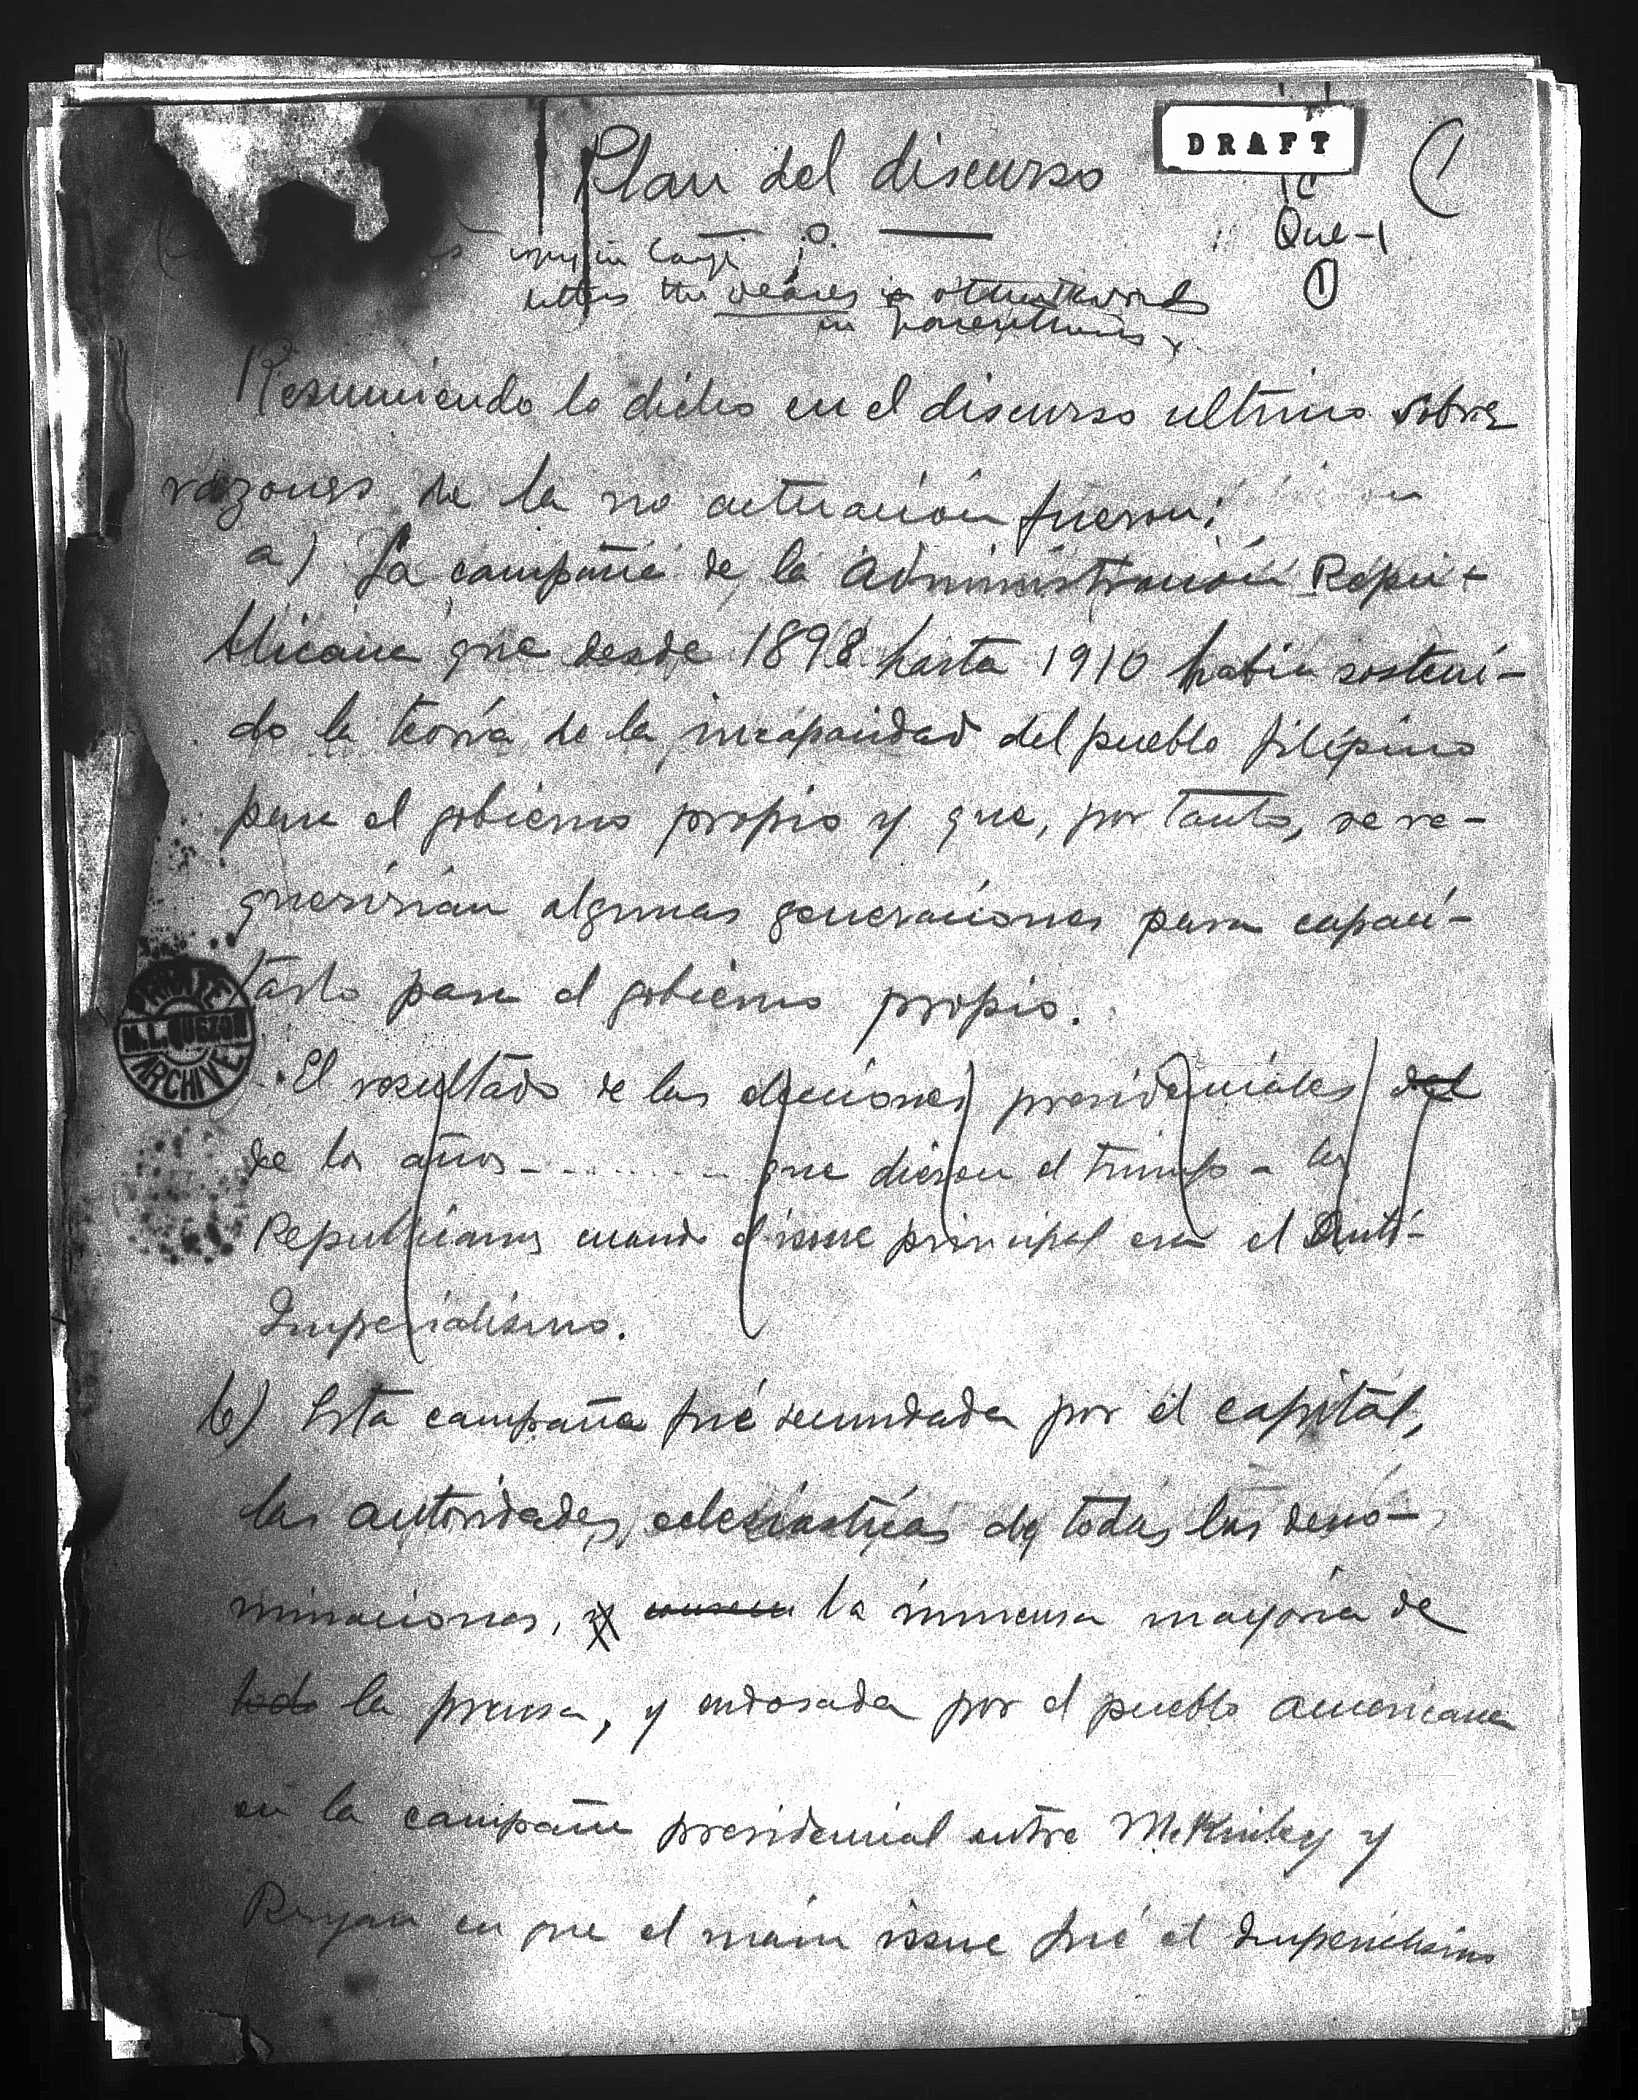 DRAFT
Plan del discurso
(1
Que-1
1
letters the in other words
in parenthesis x
Resumiendo lo dicho en el discurso ultimo sobre
razones de la no actuación fueron:
a) La campaña de la Administración Repu-
blicana que desde 1898 hasta 1910 habia sosteni-
do la teoría de la incapacidad del pueblo filipino
para el gobierno propio y que, por tanto, se re-
queririan algunas generaciones para capaci-
tarlo para el gobierno propio.
PRIVATE
M.L. QUEZON
ARCHIVE
El resultado de las elecciones presidenciales del
de los años - - - - - - - - que dieron el triunfo a los
Republicanos cuando el issue principal era el Anti-
Imperialismo.
b) Esta campaña fué secundada por el capital,
las autoridades eclesiasticas de todas las deno-
minaciones, y la inmensa mayoria de
todo la prensa, y endosada por el pueblo americano
en la campaña presidencial entre McKinley y
Bryan en que el main issue fué el Imperialismo